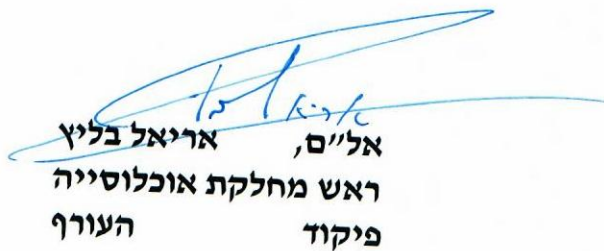 אל״ם, אריאל בליץ
ראש מחלקת אוכלוסייה
פיקוד העורף